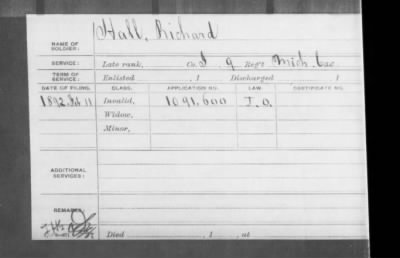 Hall, Richard
NAME OF SOLDIER:
SERVICE: Late rank, Co. I 9 Reg't Mich. Cav.
TERM OF SERVICE: Enlisted , 1 Discharged , 1
DATE OF FILING. CLASS. APPLICATION NO. LAW. CERTIFICATE NO.
1892 11 Invalid, 1091,600
Widow,
Minor,
ADDITIONAL SERVICES:
REMARKS:
Died , 1 , at